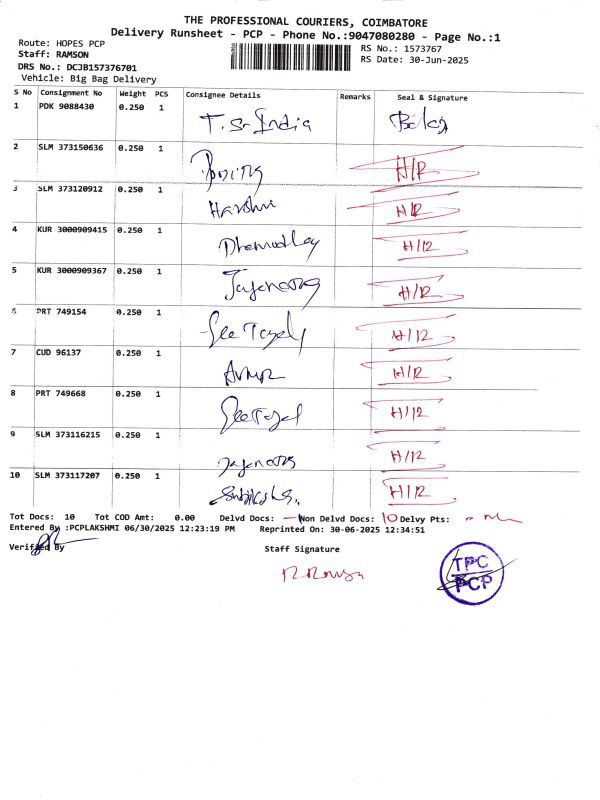 THE PROFESSIONAL COURIERS, COIMBATORE
Delivery Runsheet - PCP - Phone No.:9047080280 - Page No.:1
Route: HOPES PCP
Staff: RAMSON
DRS No.: DCJB157376701
Vehicle: Big Bag Delivery
RS No.: 1573767
RS Date: 30-Jun-2025
S No Consignment No Weight PCS Consignee Details Remarks Seal & Signature
1 PDK 9088430 0.250 1 T.S. India
2 SLM 373150636 0.250 1 H/R
3 SLM 373120912 0.250 1 Harshni H/R
4 KUR 3000909415 0.250 1 H/R
5 KUR 3000909367 0.250 1 H/R
6 PRT 749154 0.250 1 H/R
7 CUD 96137 0.250 1 H/R
8 PRT 749668 0.250 1 H/R
9 SLM 373116215 0.250 1 H/R
10 SLM 373117207 0.250 1 H/R
Tot Docs: 10 Tot COD Amt: 0.00 Delvd Docs: — Non Delvd Docs: 10 Delvy Pts:
Entered By :PCPLAKSHMI 06/30/2025 12:23:19 PM Reprinted On: 30-06-2025 12:34:51
Verified By Staff Signature
TPC
PCP